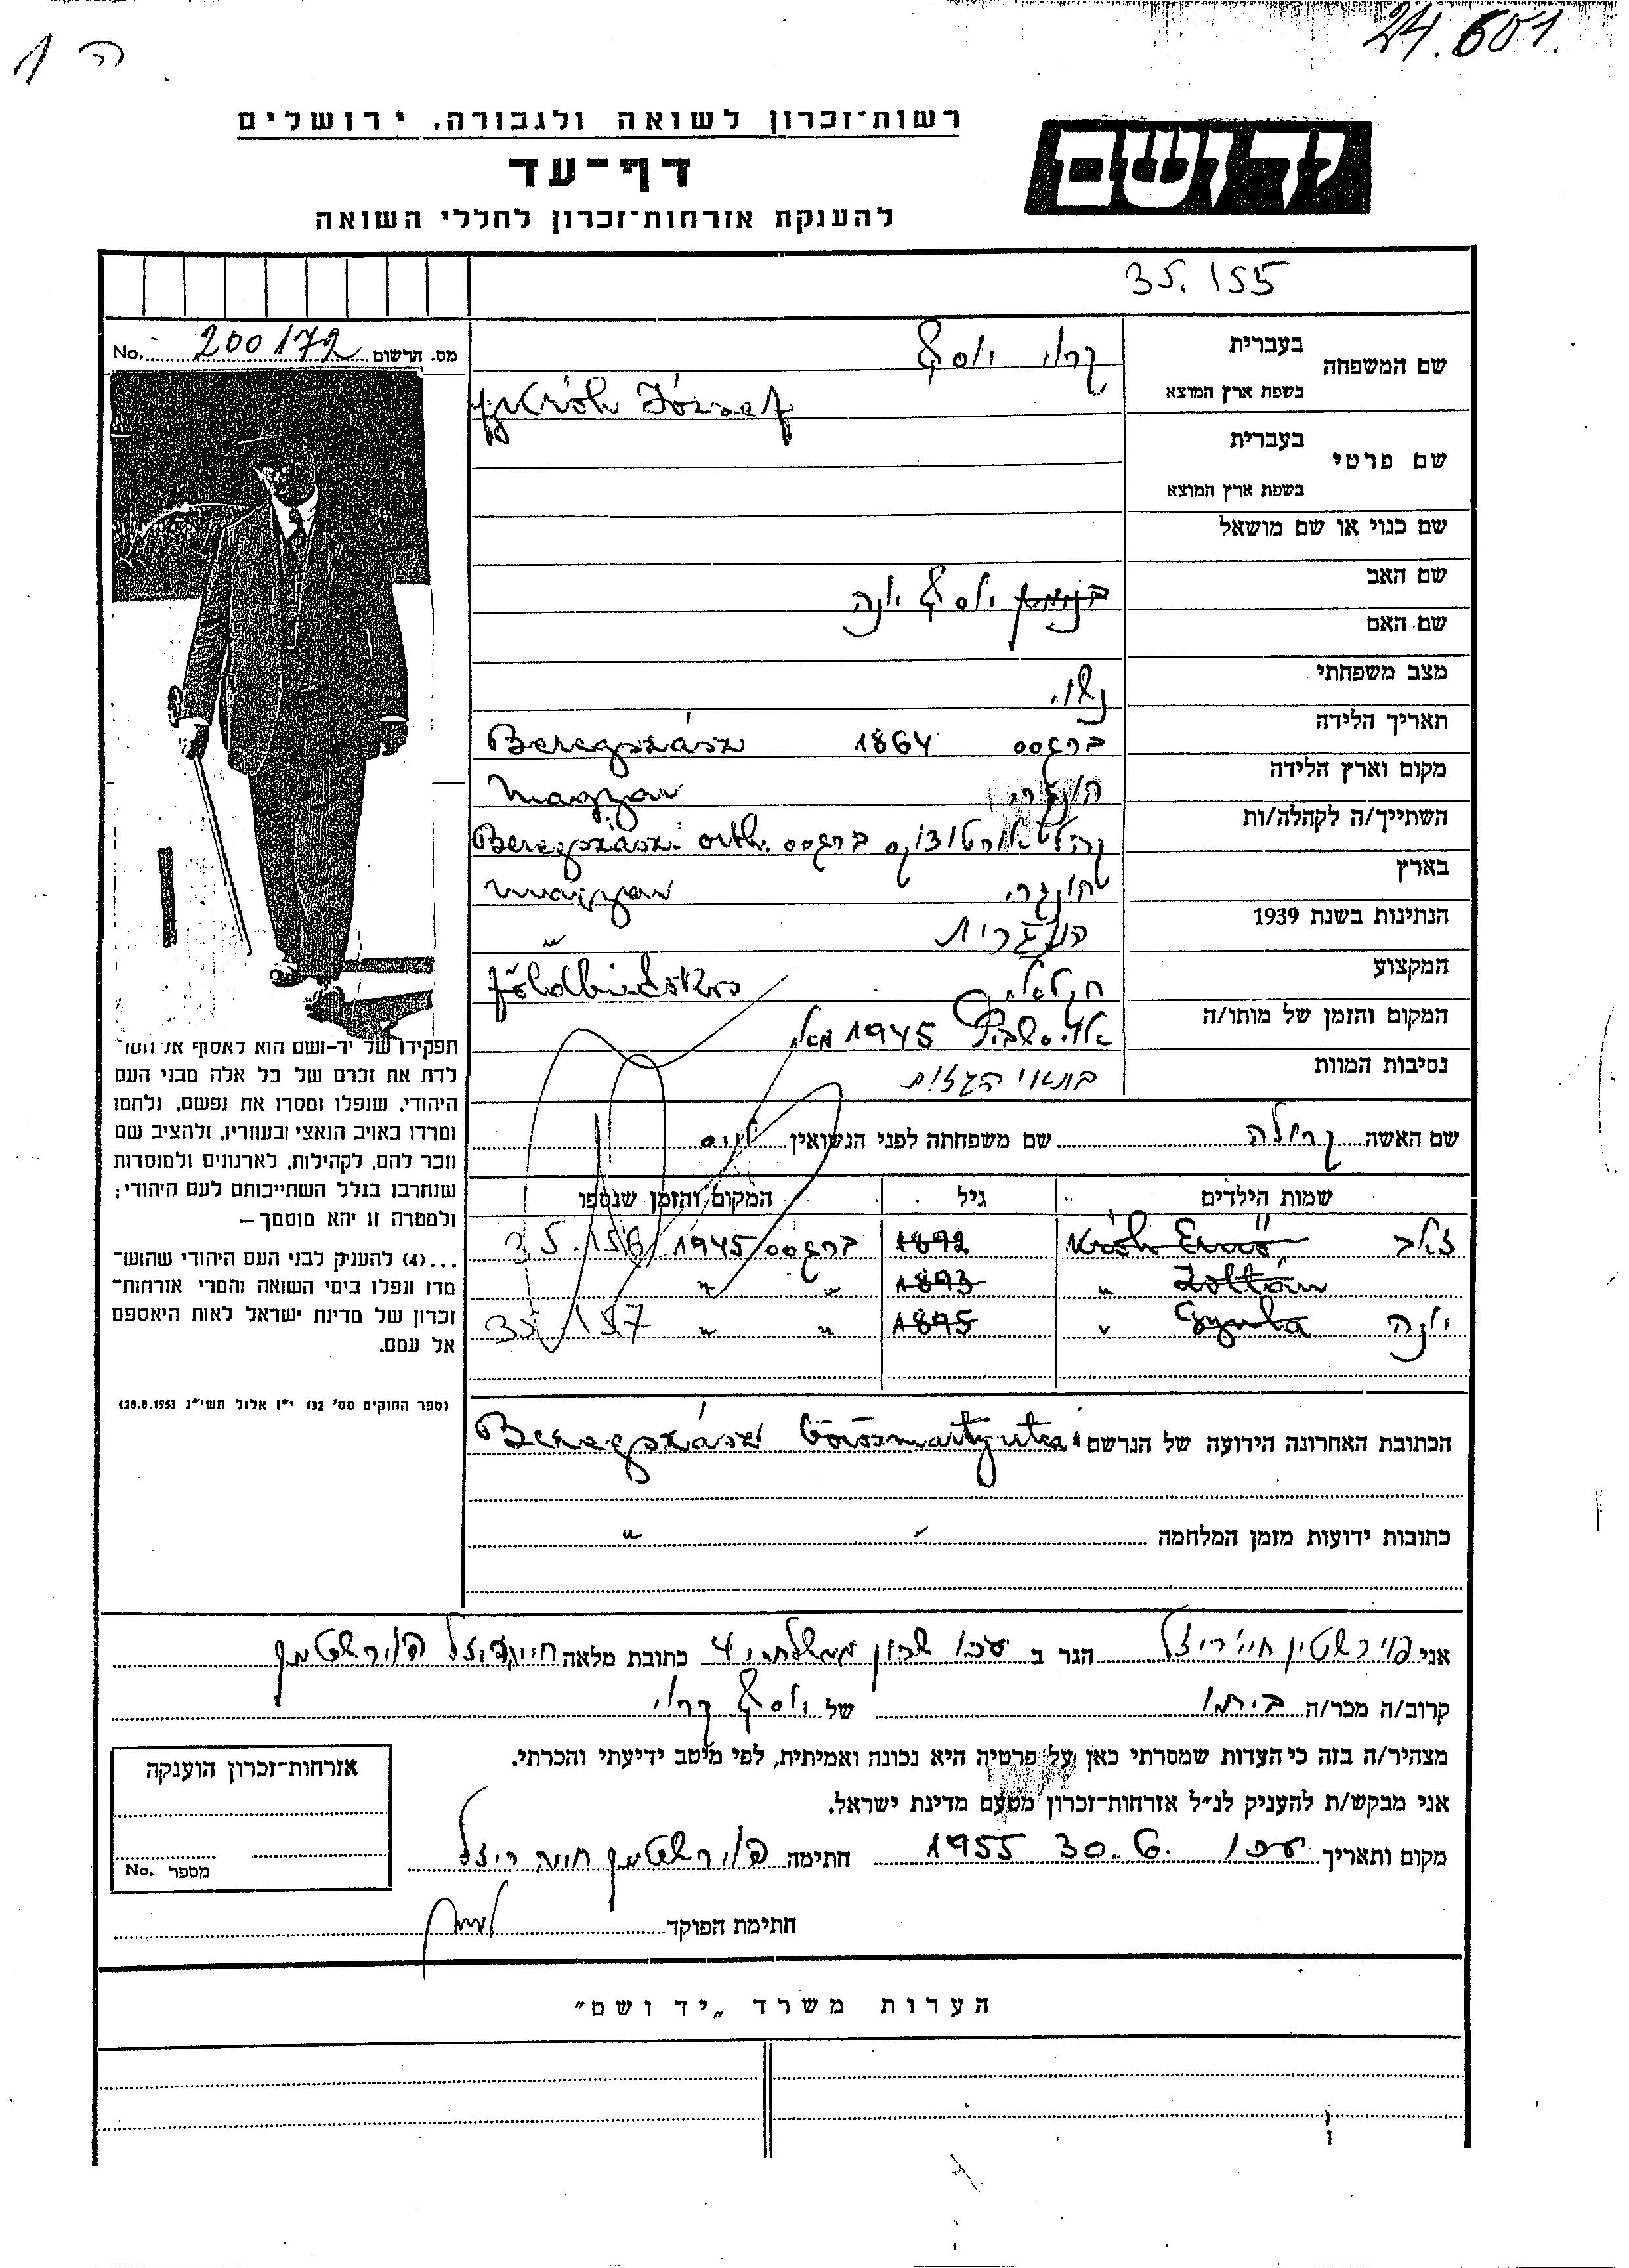 24.601.
ה 1
רשות־זכרון לשואה ולגבורה, ירושלים
ידושם
דף־עד
להענקת אזרחות־זכרון לחללי השואה
35.155
מס. תרשום 200172 No.
שם המשפחה
בעברית
קרוי יוסף
בשפת ארץ המוצא
Króh József
שם פרטי
בעברית
בשפת ארץ המוצא
שם כנוי או שם מושאל
שם האב
יוסף יונה
שם האם
מצב משפחתי
נשוי
תאריך הלידה
ברגסס 1864 Beregszász
מקום וארץ הלידה
הונגרי Magyar
השתייך/ה לקהלה/ות
ברגסס Beregszászi orth.
בארץ
הונגרי Magyar
הנתינות בשנת 1939
הונגרית "
המקצוע
חקלאי
המקום והזמן של מותו/ה
1945 מאי
נסיבות המוות
בתאי הגזים
שם האשה שם משפחתה לפני הנשואין
שמות הילדים גיל המקום והזמן שנספו
Króh Ernő 1892 ברגסס 1945 35.156
Zoltán " 1893 " "
יונה Gyula " 1895 " " 35.157
תפקידו של יד־ושם הוא לאסוף אל המו־
לדת את זכרם של כל אלה מבני העם
היהודי, שנפלו ומסרו את נפשם, נלחמו
ומרדו באויב הנאצי ובעוזריו, ולהציב שם
וזכר להם, לקהילות, לארגונים ולמוסדות
שנחרבו בגלל השתייכותם לעם היהודי;
ולמטרה זו יהא מוסמך —
...(4) להעניק לבני העם היהודי שהוש־
מדו ונפלו בימי השואה והמרי אזרחות־
זכרון של מדינת ישראל לאות היאספם
אל עמם.
(ספר החוקים מס' 132 י״ז אלול תשי״ג 28.8.1953)
הכתובת האחרונה הידועה של הנרשם Beregszász Vörösmarty utca
כתובות ידועות מזמן המלחמה " "
אני הגר ב עכו שכון ממשלתי 4 כתובת מלאה
קרוב/ה מכר/ה של יוסף קרוי
מצהיר/ה בזה כי העדות שמסרתי כאן על פרטיה היא נכונה ואמיתית, לפי מיטב ידיעתי והכרתי.
אני מבקש/ת להעניק לנ״ל אזרחות־זכרון מטעם מדינת ישראל.
מקום ותאריך עכו 30.6.1955 חתימה
חתימת הפוקד
אזרחות־זכרון הוענקה
מספר No.
הערות משרד „יד ושם״